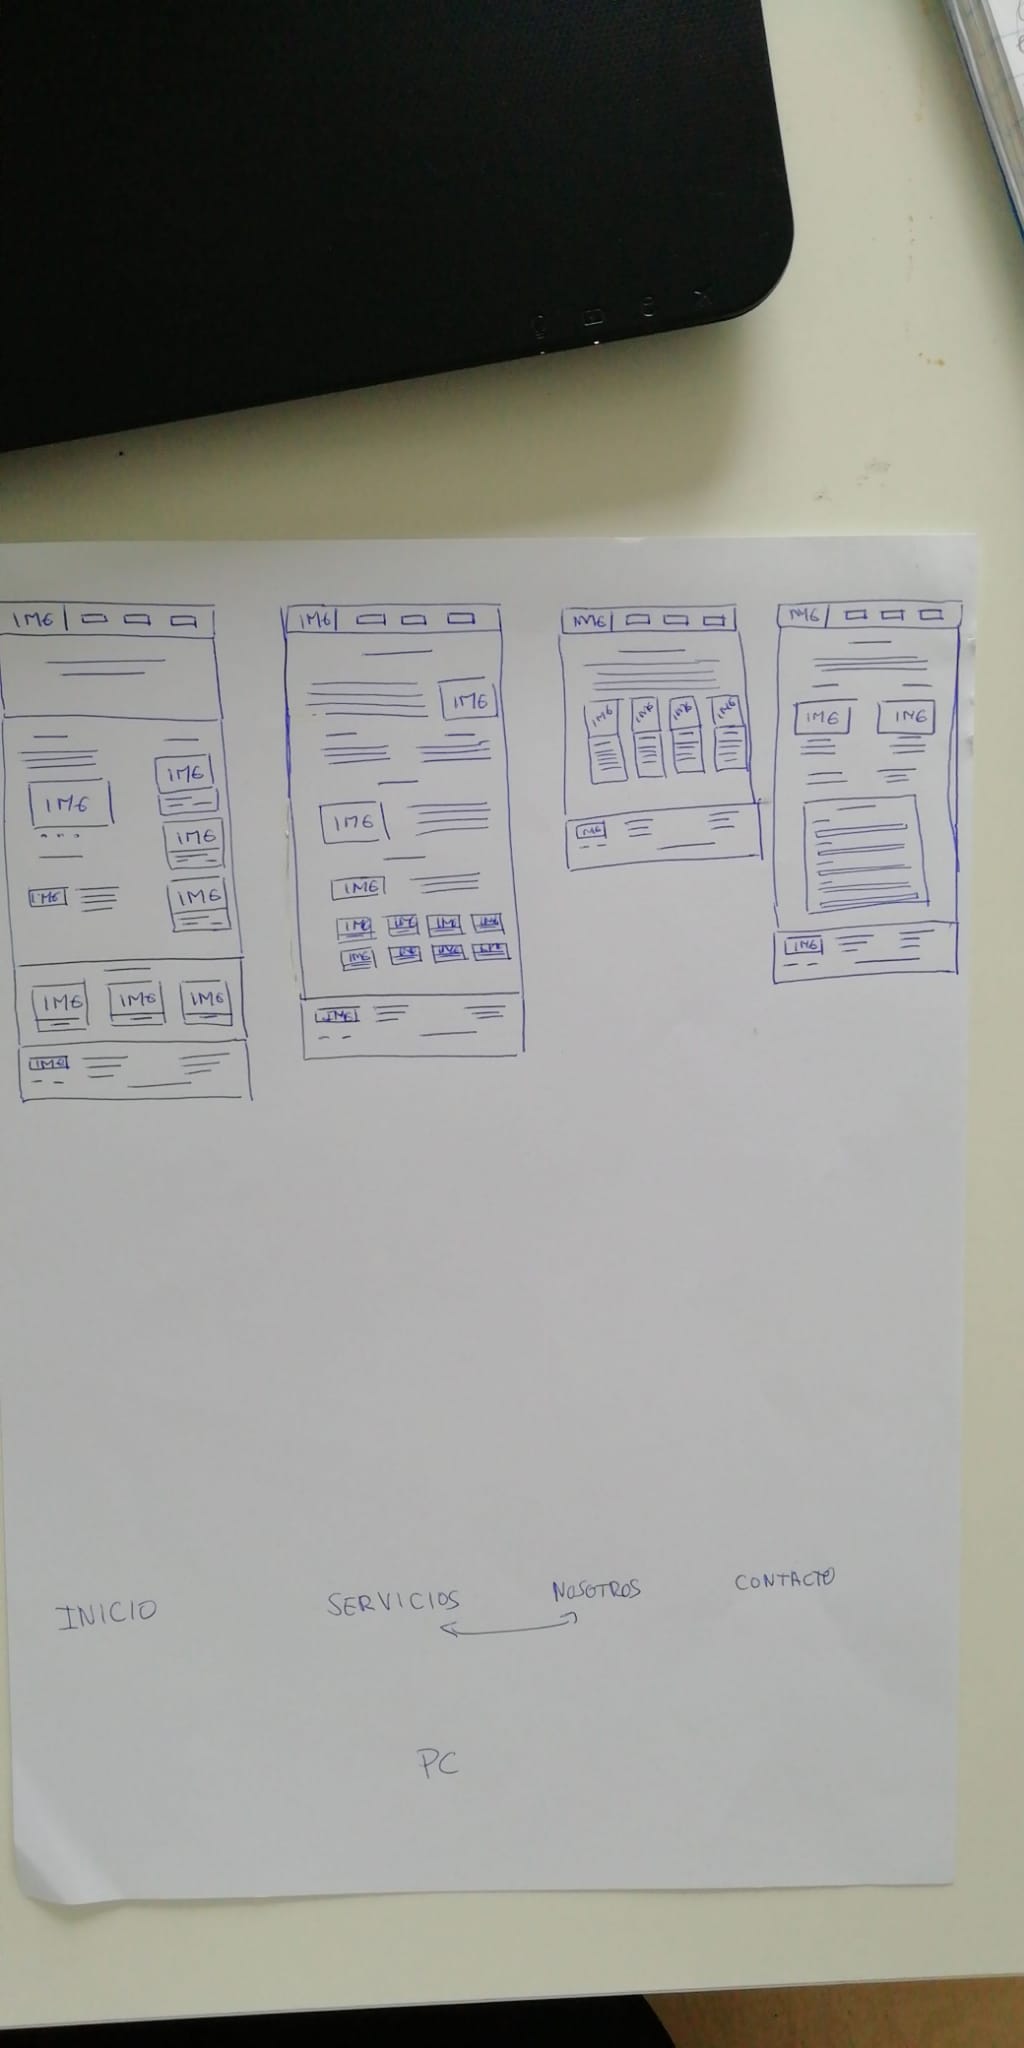 IMG IMG IMG IMG
IMG
IMG IMG IMG IMG IMG IMG
IMG
IMG
IMG IMG
IMG
IMG
IMG IMG
IMG
IMG IMG IMG IMG
IMG IMG IMG IMG
IMG IMG IMG
IMG
IMG
IMG
IMG
INICIO SERVICIOS NOSOTROS CONTACTO
PC